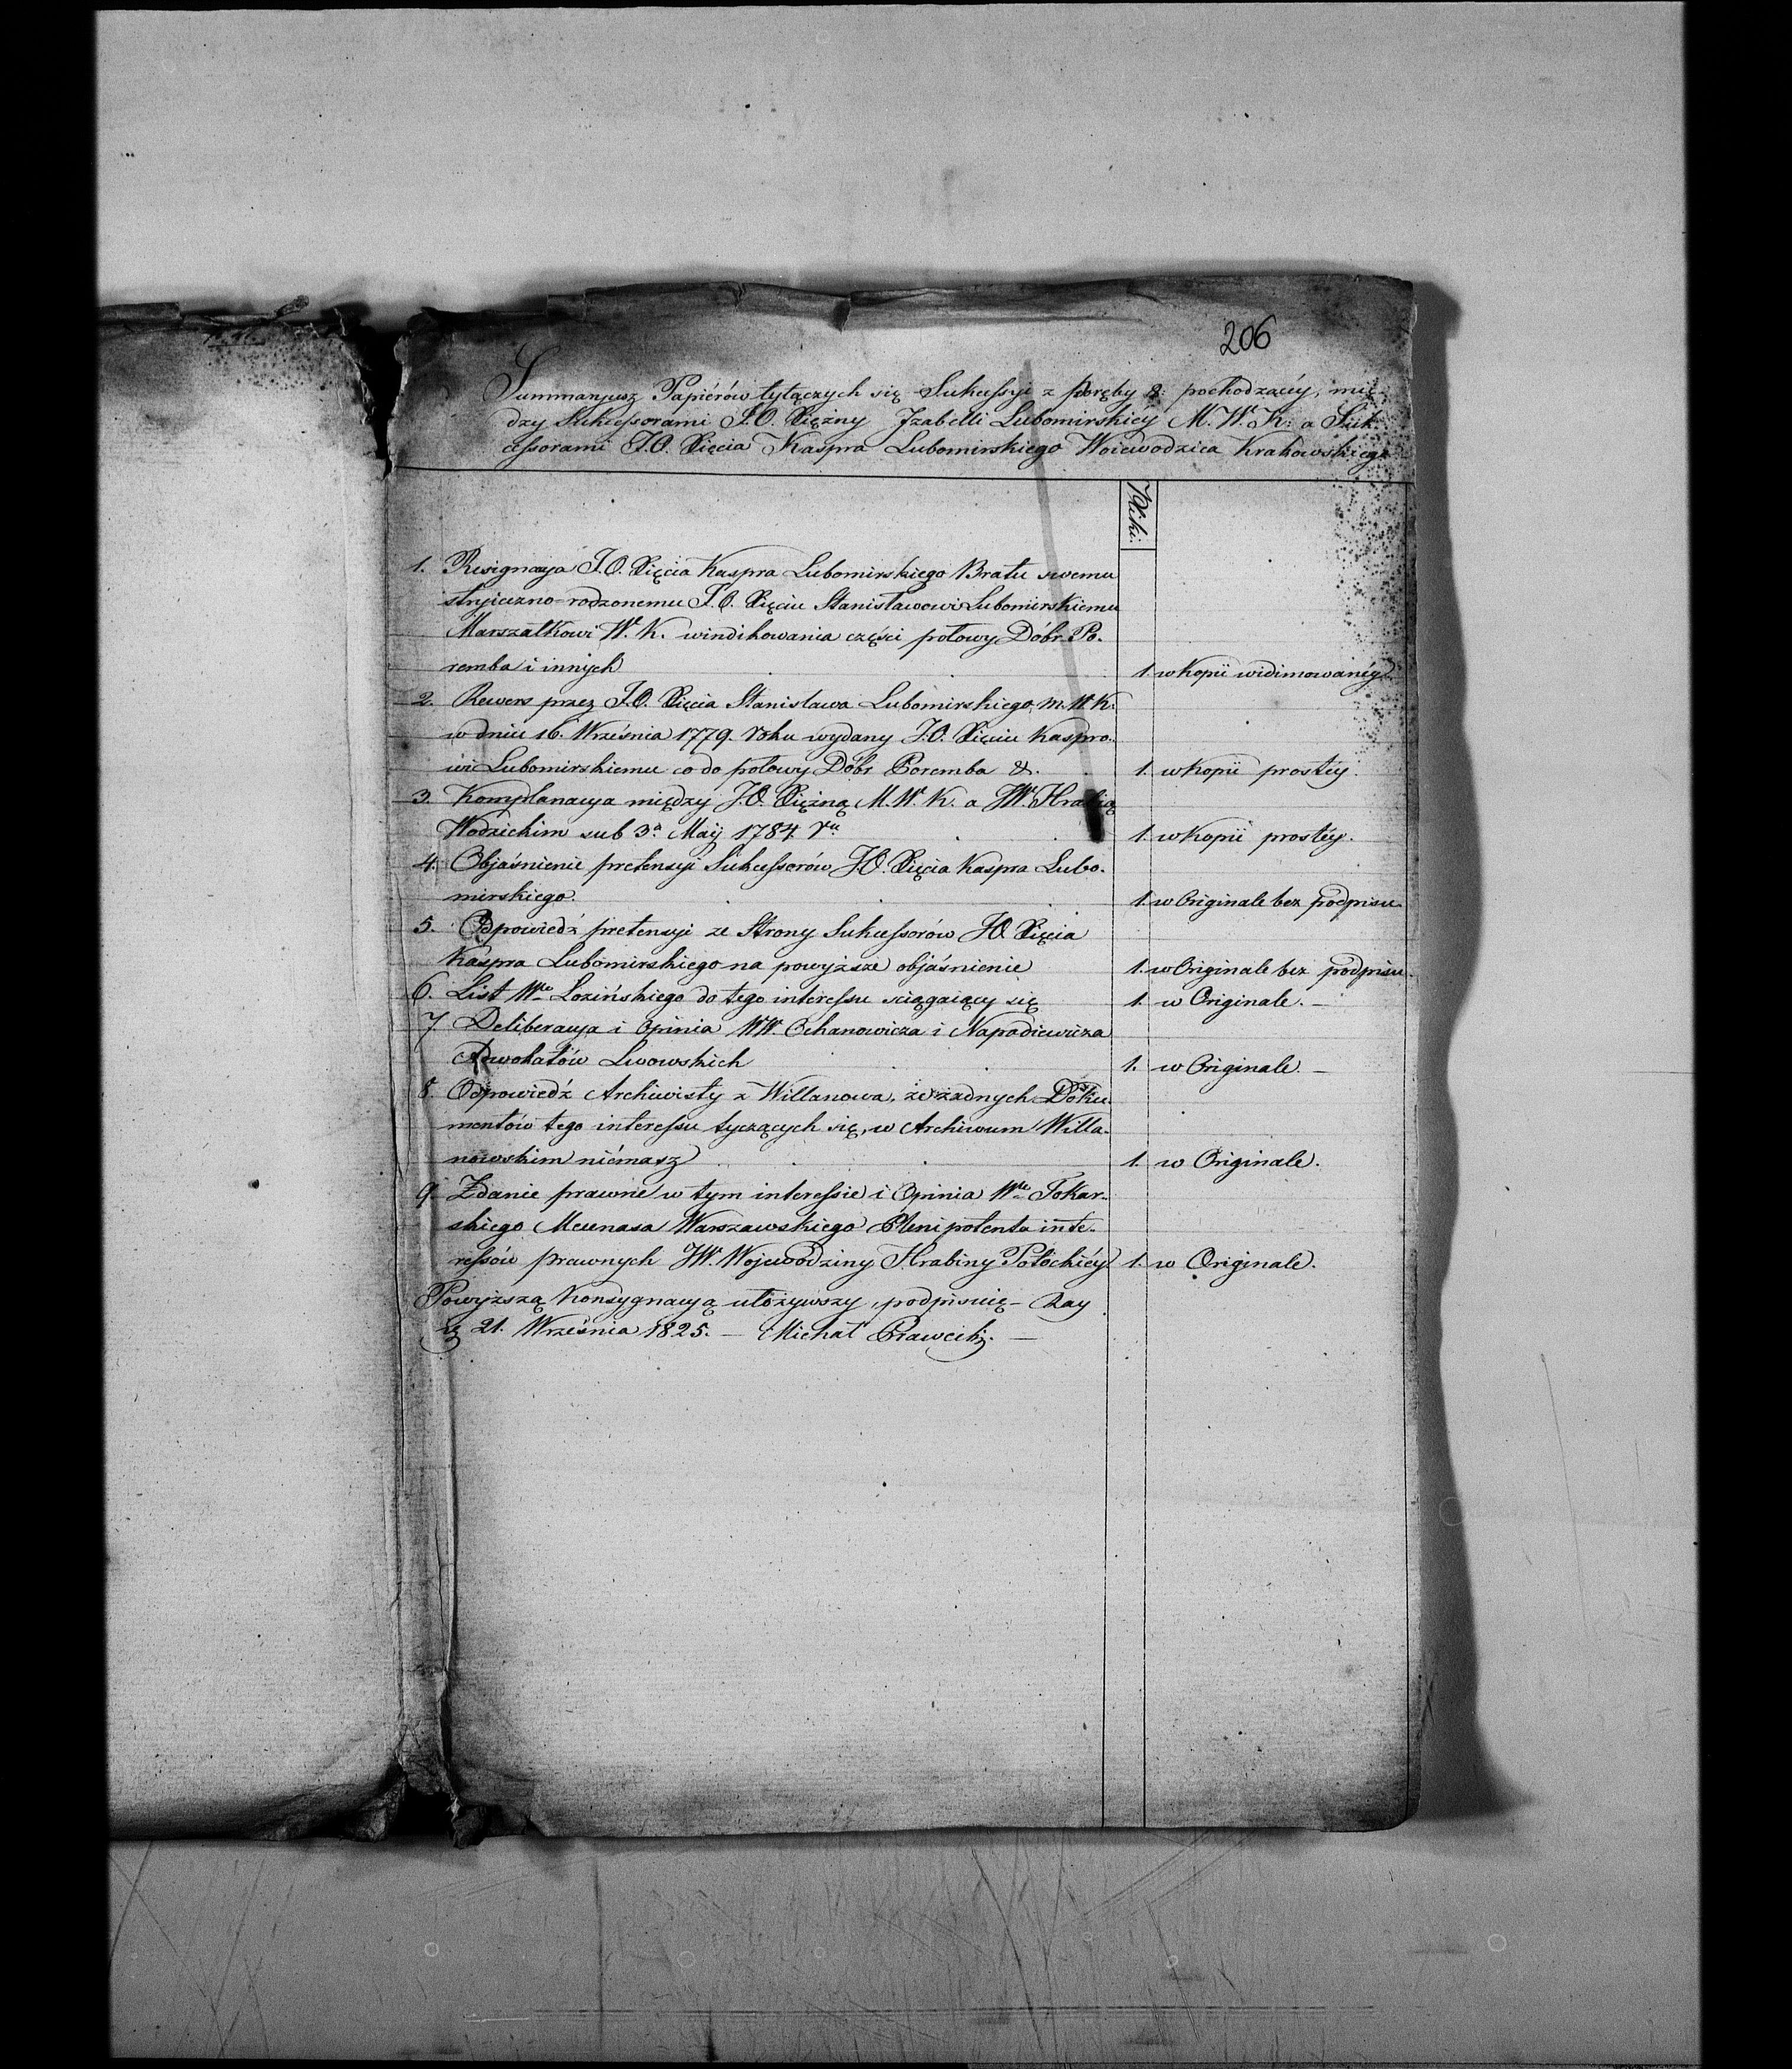 206
Summaryusz Papiérów tytączych się Sukcessyi z Poręby &: pochodzącéy, mię-
dzy Sukcessorami J.O. Xiężny Jzabelli Lubomirskiéy M. W. K: a Suk-
cessorami J.O. Xięcia Kaspra Lubomirskiego Woiewodzica Krakowskiego
1. Resignacya J.O. Xięcia Kaspra Lubomirskiego Bratu swemu
stryieczno-rodzonemu J.O. Xięciu Stanisławowi Lubomirskiemu
Marszałkowi W. K. windikowania części połowy Dóbr Po-
remba i innych . . 1. w Kopii widimowanéy
2. Rewers przez J.O. Xięcia Stanisława Lubomirskiego M. W. K.
w dniu 16. Września 1779. Roku wydany J.O. Xięciu Kaspro-
wi Lubomirskiemu co do połowy Dóbr Poremba &. . 1. w Kopii prostéy.
3. Komplanacya między J.O. Xiężną M. W. K. a JW. Hrabią
Wodzickim sub 3a Maij 1784 ru . . 1. w Kopii prostéy.
4. Objaśnienie pretensyi Sukcessorów J.O. Xięcia Kaspra Lubo-
mirskiego. . . . 1. w Originale bez podpisu
5. Odpowiedź pretensyi ze Strony Sukcessorów J.O. Xięcia
Kaspra Lubomirskiego na powyższe objaśnienie 1. w Originale bez podpisu.
6. List Wgo Lozińskiego do tego interessu sciągaiący się 1. w Originale. –
7 Deliberacya i Opinia WW. Ochanowicza i Napadiewicza
Adwokatów Lwowskich . . 1. w Originale. –
8. Odpowiedź Archiwisty z Willanowa, że żadnych Doku-
mentów tego interessu tyczących się, w Archiwum Willa-
nowskim niémasz . . . 1. w Originale.
9. Zdanie prawne w tym interessie i Opinia Wgo Tokar-
skiego Mecenasa Warszawskiego Plenipotenta inte-
ressów prawnych JW. Wojewodziny Hrabiny Potockiéy 1. w Originale.
Powyższą Konsygnacyą ułożywszy, podpisuię –
21. Września 1825. – Michał –